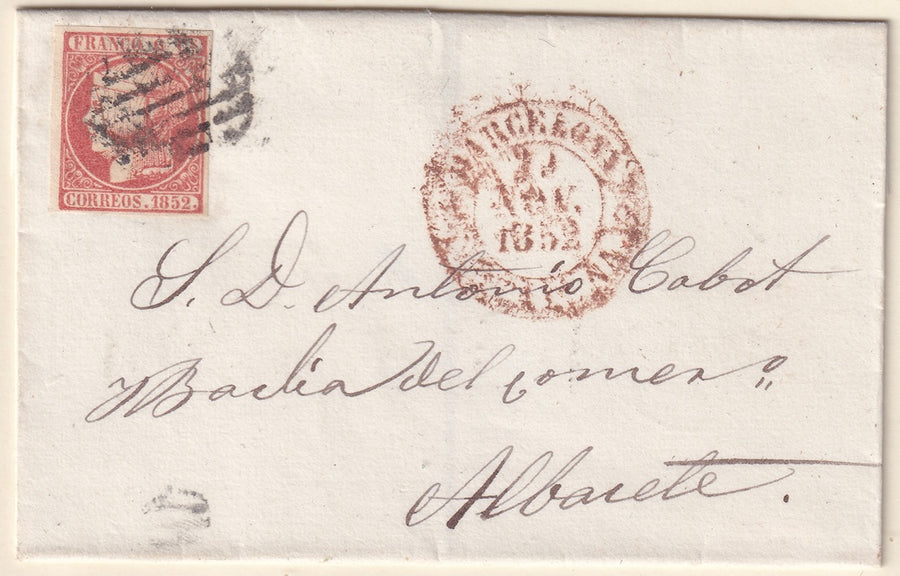 FRANCO.
CORREOS. 1852.
BARCELONA
ABR.
1852
S. D. Antonio Cabot
y Badia del comerº
Albacete.